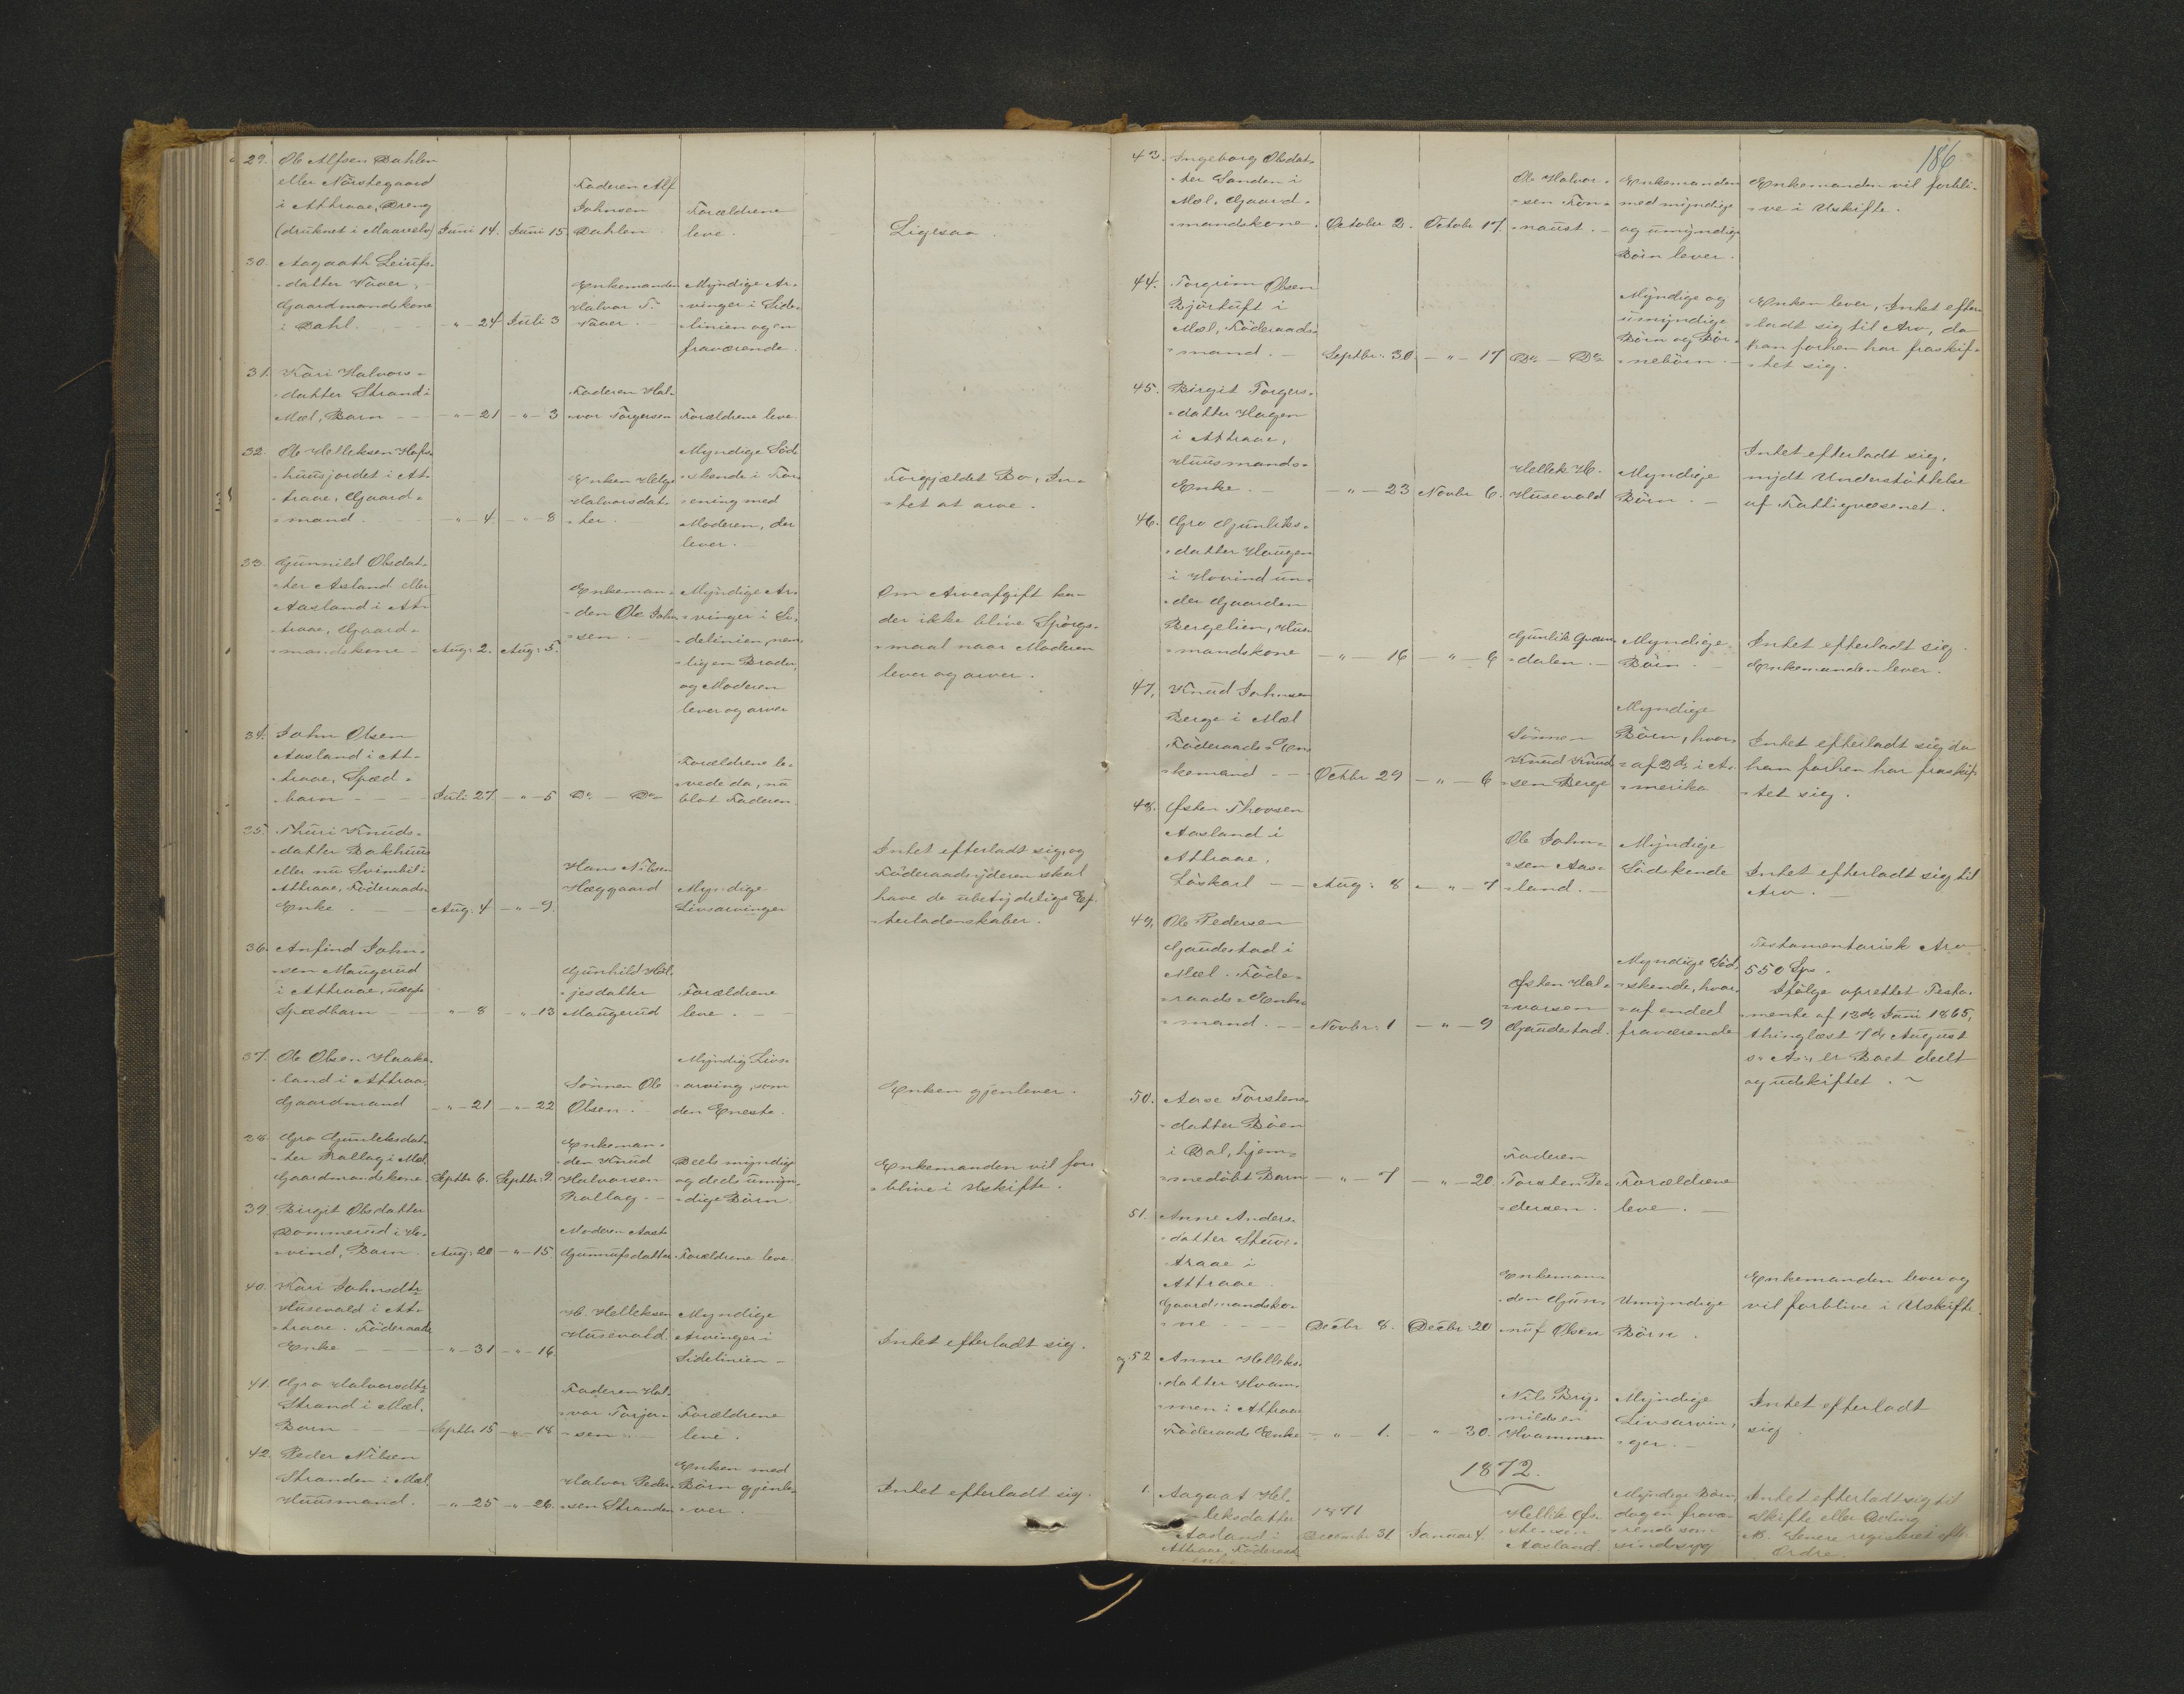 29. Ole Alfsen Dahlen
eller Nörstegaard
i Attraae, Dreng
(druknet i Maarelv) Juni 14. Juni 15
Faderen Alf
Johnsen
Dahlen
Forældrene
leve.
Ligesaa.
30. Aagaath Leiufs-
datter Vaaer,
Gaardmandskone
i Dahl. - " - 24 Juli 3
Enkemanden
Halvor T.
Vaaer.
Myndige Ar-
vinger i Side-
linien og en
fraværende.
31. Kari Halvors-
datter Strand i
Mæl, Barn - " - 21 - " - 3
Faderen Hal-
vor Torgersen
Forældrene leve
32. Ole Helleksen
huusjordet i At-
traae, Gaard-
mand. - " - 4. - " - 8
Enken Helge
Halvorsdat-
ter.
Myndige Söd-
skende i For-
ening med
Moderen, der
lever.
Forgjældet Bo, In-
tet at arve.
33. Gunnild Olsdat-
ter Aasland eller
Aasland i At-
traae, Gaard-
mandskone - Aug: 2. Aug: 5.
Enkeman-
den Ole John-
sen.
Myndige Ar-
vinger i Si-
delinien, nem-
ligen Broder,
og Moderen
lever og arver
Om Arveafgift kan
der ikke blive Spörgs-
maal naar Moderen
lever og arver.
34. John Olsen
Aasland i At-
traae, Spæd-
barn - Juli 27 - " - 5 Do - Do
Forældrene le-
vede da, nu
blot Faderen.
35. Thuri Knuds-
datter Bakhuus
eller nu Svimbil i
Attraae, Föderaads-
Enke. - Aug: 4 - " - 9.
Hans Nilsen
Hæggaard
Myndige
Livsarvinger
Intet efterladt sig, og
Föderaadsyderen skal
have de ubetydelige Ef-
terladenskaber.
36. Anfind John-
sen Maugerud
i Attraae, uægte
Spædbarn - " - 8 - " - 13
Gunhild Hel-
jesdatter
Maugerud
Forældrene
leve. -
37. Ole Olsen Haaka-
land i Attraae,
Gaardmand - " - 21 - " - 22
Sönnen Ole
Olsen.
Myndig Livs-
arving, som
den Eneste.
Enken gjenlever.
38. Gro Gunleksdat-
ter Rallag i Mæl,
Gaardmandskone Septbr: 6. Septbr: 9.
Enkeman-
den Knud
Halvorsen
Rallag. -
Deels myndige
og deels umyn-
dige Börn.
Enkemanden vil for-
blive i Uskifte.
39. Birgit Olsdatter
Dommerud i Ho-
vind, Barn. Aug: 20 - " - 15
Moderen Aaste
Gunnufsdatter
Forældrene leve.
40. Kari Johnsdtr
Husevold i At-
traae. Föderaads
Enke - " - 31 - " - 16.
H. Helleksen
Husevold.
Myndige
Arvinger i
Sidelinien -
Intet efterladt sig.
41. Gro Halvorsdtr
Strand i Mæl.
Barn - Septbr 15 - " - 18
Faderen Hal-
vor Torjer-
sen.
Forældrene
leve.
42. Peder Nilsen
Stranden i Mæl,
Huusmand. - " - 25 - " - 26.
Halvor Peder-
sen Stranden
Enken med
Börn gjenle-
ver.
Intet efterladt sig.
186
43. Ingeborg Olsdat-
ter Sanden i
Mæl, Gaard-
mandskone. October 2. Octobr 17.
Ole Halvor-
sen Fon-
naust. -
Enkemanden
med myndige
og umyndige
Börn lever.
Enkemanden vil forbli-
ve i Uskifte.
44. Torgrim Olsen
Bjørtuft i
Mæl, Föderaads-
mand. - Septbr: 30. - " - 17 Do - Do
Myndige og
umyndige
Börn og Bör-
nebörn. -
Enken lever, Intet efter-
ladt sig til Arv, da
han forhen har fraskif-
tet sig.
45. Birgit Torgers-
datter Hagen
i Attraae,
Huusmands-
Enke. - " - 23 Novbr 6.
Hellek H.
Husevold
Myndige
Börn. -
Intet efterladt sig,
nydt Understöttelse
af Fattigvæsenet.
46. Gro Gunleks-
datter Haugen
i Hovind un-
der Gaarden
Bergelien, Hus-
mandskone - " - 16 - " - 6
Gunlik
dalen. -
Myndige
Börn. -
Intet efterladt sig.
Enkemanden lever.
47. Knud Johnsen
Berge i Mæl
Föderaads-En-
kemand - Octbr 29 - " - 6
Sönnen
Knud Knud-
sen Berge
Myndige
Börn, hvor-
af 2de i A-
merika
Intet efterladt sig da
han forhen har fraskif-
tet sig.
48. Østen Thovsen
Aasland i
Attraae,
Löskarl - Aug: 8 - " - 7
Ole John-
sen Aas-
land. -
Myndige
Södskende
Intet efterladt sig til
Arv. -
49. Ole Pedersen
Gaudestad i
Mæl. Föde-
raads-Enke-
mand. - Novbr: 1 - " - 9
Østen Hal-
vorsen
Gaudestad.
Myndige Söd-
skende, hvor-
af endeel
fraværende
Testamentarisk Arv
550 Spd.
Ifölge oprettet Testa-
mente af 13de Juni 1865,
thinglæst 7de August
s. A., er Boet deelt
og udskiftet.
50. Aase Torstens-
datter Böen
i Dal, hjem-
medöbt Barn - " - 7 - " - 20
Faderen
Torsten Pe-
dersen.
Forældrene
leve. -
51. Anne Anders-
datter
traae i
Attraae.
Gaardmandsko-
ne - Decbr 8. Decbr: 20
Enkeman-
den Gun-
nuf Olsen
Umyndige
Börn.
Enkemanden lever og
vil forblive i Uskifte.
52 Anne Helleks-
datter Hvam-
men i Attraae
Föderaads Enke - " - 1. - " - 30.
Nils Bry-
nildsen
Hvammen
Myndige
Livsarvin-
ger. -
Intet efterladt
sig
1872.
1. Aagaat Hel-
leksdatter
Aasland i
Attraae, Föderaads-
enke
1871
December 31 Januar 4
Hellik Øs-
stensen
Aasland.
Myndige Börn,
dog en fravæ-
rende som
sindssyg
Intet efterladt sig til
Skifte eller Deling
NB. Senere registreret efter
Ordre.